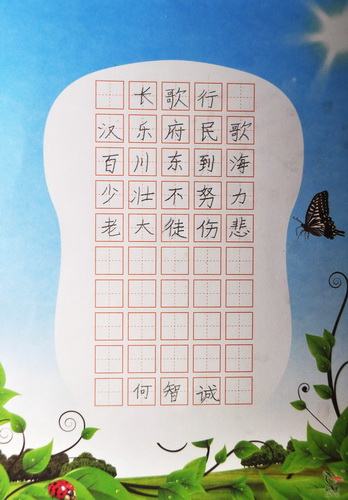 长歌行
汉乐府民歌
百川东到海
少壮不努力
老大徒伤悲
何智诚